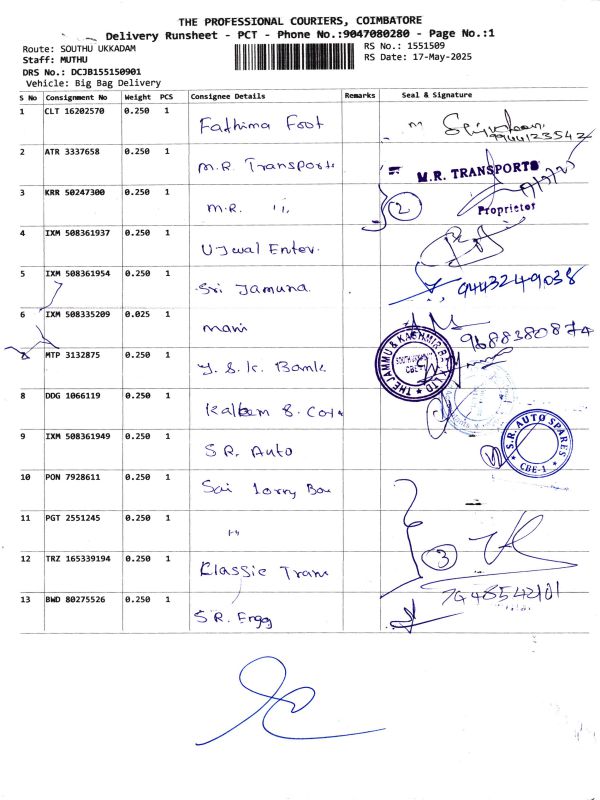 THE PROFESSIONAL COURIERS, COIMBATORE
Delivery Runsheet - PCT - Phone No.:9047080280 - Page No.:1
Route: SOUTHU UKKADAM
RS No.: 1551509
Staff: MUTHU
RS Date: 17-May-2025
DRS No.: DCJB155150901
Vehicle: Big Bag Delivery
S No Consignment No Weight PCS Consignee Details Remarks Seal & Signature
1 CLT 16202570 0.250 1 Fathima Foot 9944123542
2 ATR 3337658 0.250 1 M.R. Transports M.R. TRANSPORTS
Proprietor
3 KRR 50247300 0.250 1 M.R. 11, 2
4 IXM 508361937 0.250 1 Ujwal Enter.
5 IXM 508361954 0.250 1 Sri Jamuna. 9443249038
6 IXM 508335209 0.025 1 mani 9688380874
MTP 3132875 0.250 1 J.&.K. Bank THE JAMMU & KASHMIR BANK LTD CBE-1
8 DDG 1066119 0.250 1
9 IXM 508361949 0.250 1 S.R. Auto S.R. AUTO SPARES CBE-1
10 PON 7928611 0.250 1 Sai Lorry Boo
11 PGT 2551245 0.250 1 3
12 TRZ 165339194 0.250 1 Classic Trans 7448542101
13 BWD 80275526 0.250 1 S.R. Engg